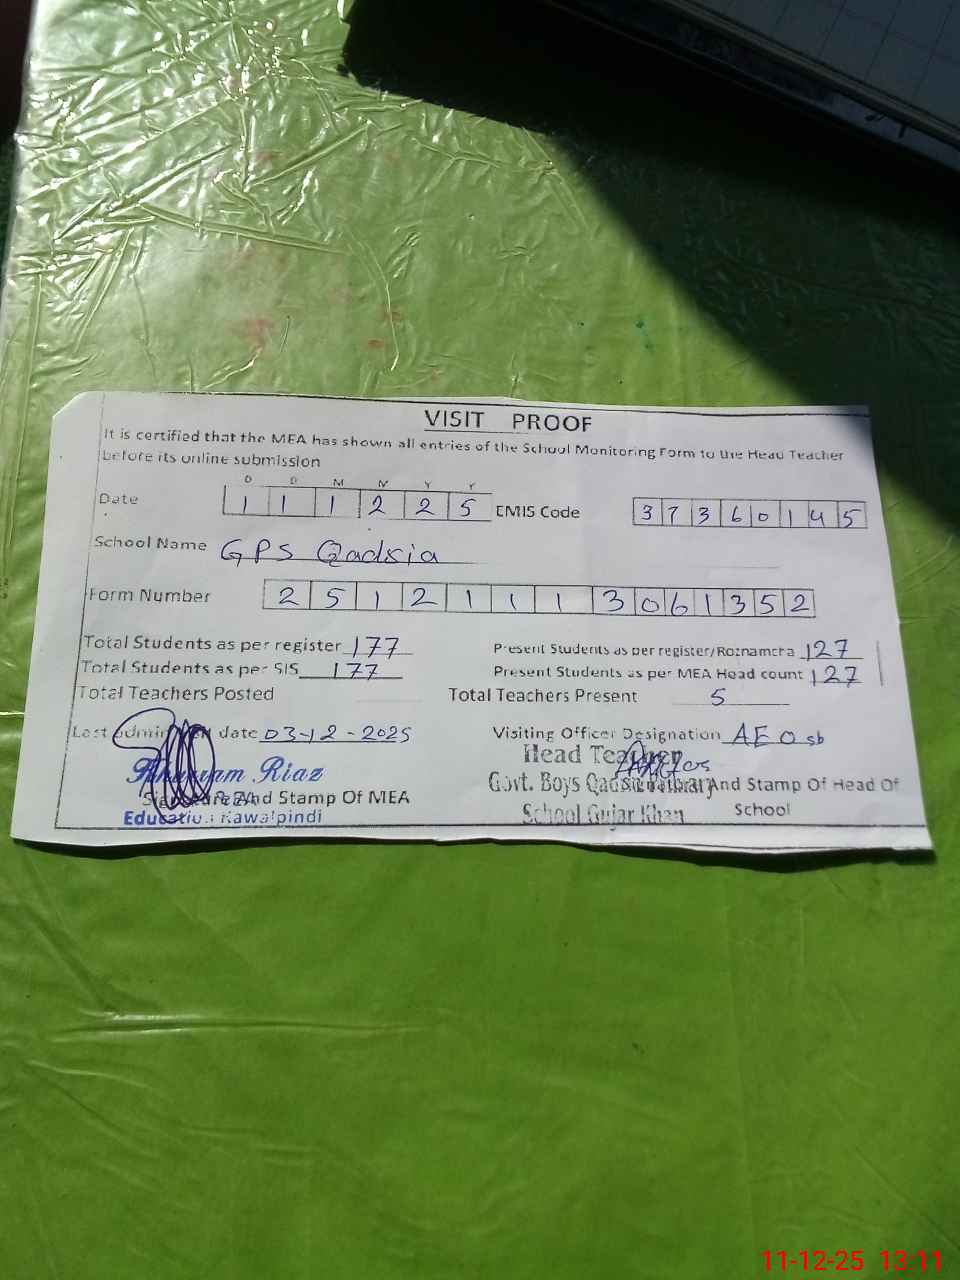 VISIT PROOF
It is certified that the MEA has shown all entries of the School Monitoring Form to the Head Teacher
before its online submission
D D M M Y Y
Date 1 1 1 2 2 5 EMIS Code 3 7 3 6 0 1 4 5
School Name GPS Qadsia
Form Number 2 5 1 2 1 1 1 3 0 6 1 3 5 2
Total Students as per register 177 Present Students as per register/Roznamcha 127
Total Students as per SIS 177 Present Students as per MEA Head count 127
Total Teachers Posted Total Teachers Present 5
Last admission date 03-12-2025 Visiting Officer Designation AEO sb
Khurram Riaz Head Teacher
Signature And Stamp Of MEA Govt. Boys Qadsia And Stamp Of Head Of
Education Rawalpindi School Gujar Khan School
11-12-25 13:11